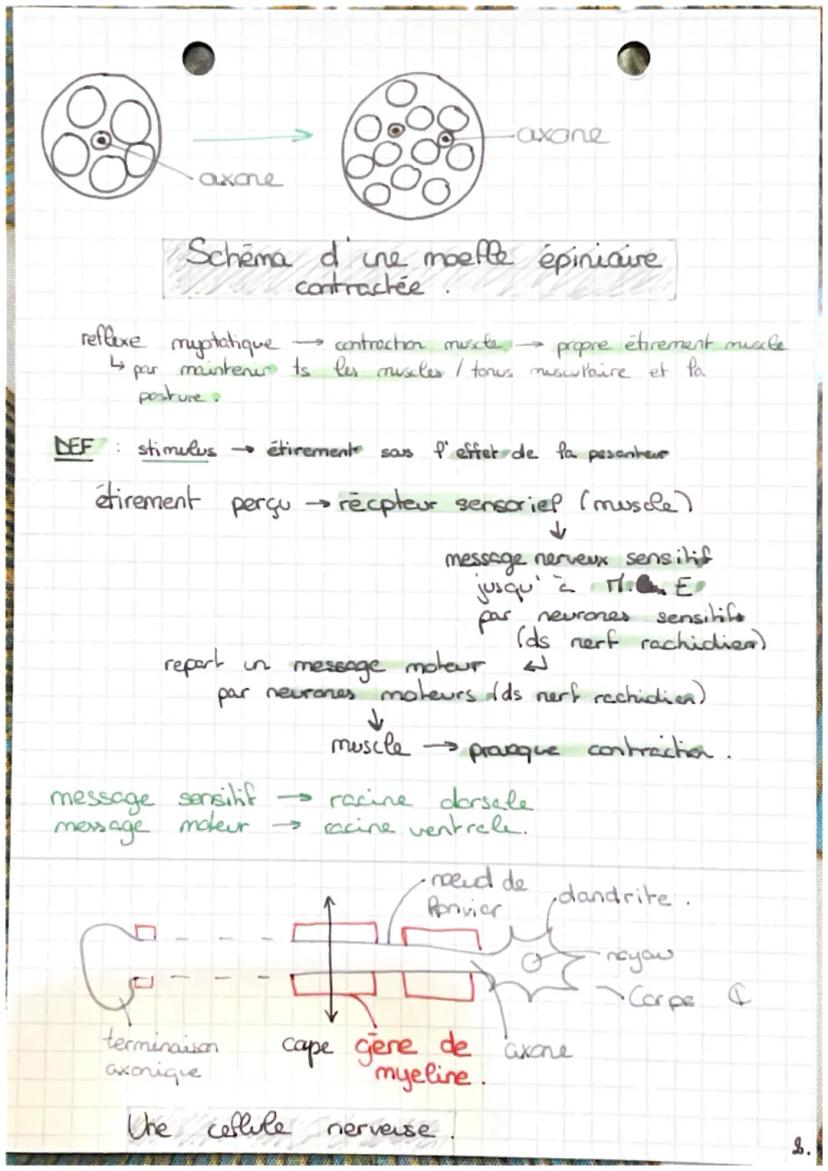 axone
axone
Schéma d'une moelle épiniaire
contractée.
reflexe myotatique → contraction muscle → propre étirement muscle
↳ par maintenir ts les muscles / tonus musculaire et la
posture.
DEF : stimulus → étirement sous l'effet de la pesanteur
étirement perçu → récpteur sensoriel (muscle)
↓
message nerveux sensitif
jusqu'à M. E
par neurones sensitifs
(ds nerf rachidien)
repart un message moteur ↵
par neurones moteurs (ds nerf rachidien)
↓
muscle → provoque contraction.
message sensitif → racine dorsale
message moteur → racine ventrale.
nœud de
Ranvier
dandrite.
noyau
Corps C
terminaison
axonique
cape
gène de
myeline.
axone
Une cellule nerveuse.
2.